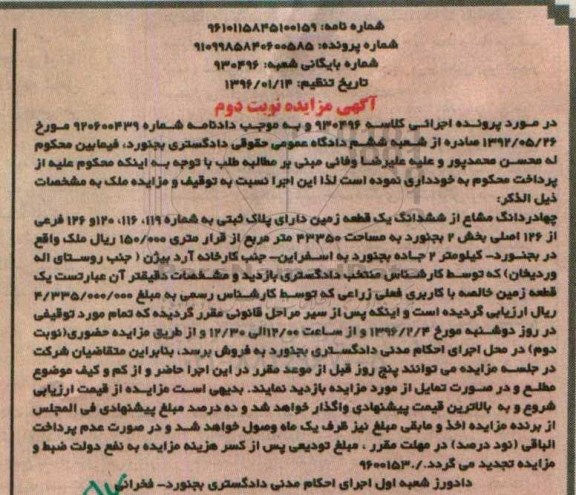 شماره نامه: ۹۶۱۰۱۱۵۸۴۵۱۰۰۱۵۹
شماره پرونده: ۹۱۰۹۹۸۵۸۴۰۶۰۰۵۸۵
شماره بایگانی شعبه: ۹۳۰۴۹۶
تاریخ تنظیم: ۱۳۹۶/۰۱/۱۴
آگهی مزایده نوبت دوم
در مورد پرونده اجرائی کلاسه ۹۳۰۴۹۶ و به موجب دادنامه شماره ۹۲۰۶۰۰۴۳۹ مورخ
۱۳۹۲/۰۵/۲۶ صادره از شعبه ششم دادگاه عمومی حقوقی دادگستری بجنورد، فیمابین محکوم
له محسن محمدپور و علیه علیرضا وفائی مبنی بر مطالبه طلب با توجه به اینکه محکوم علیه از
پرداخت محکوم به خودداری نموده است لذا این اجرا نسبت به توقیف و مزایده ملک به مشخصات
ذیل الذکر:
چهاردانگ مشاع از ششدانگ یک قطعه زمین دارای پلاک ثبتی به شماره ۱۱۹، ۱۱۶، ۱۲۰و ۱۲۶ فرعی
از ۱۲۶ اصلی بخش ۲ بجنورد به مساحت ۴۳۳۵۰ متر مربع از قرار متری ۱۵۰/۰۰۰ ریال ملک واقع
در بجنورد- کیلومتر ۲ جاده بجنورد به اسفراین- جنب کارخانه آرد بیژن ( جنب روستای اله
وردیخان) که توسط کارشناس منتخب دادگستری بازدید و مشخصات دقیقتر آن عبارتست یک
قطعه زمین خالصه با کاربری فعلی زراعی که توسط کارشناس رسمی به مبلغ ۴/۳۳۵/۰۰۰/۰۰۰
ریال ارزیابی گردیده است و اینکه پس از سیر مراحل قانونی مقرر گردیده که تمام مورد توقیفی
در روز دوشنبه مورخ ۱۳۹۶/۲/۴ و از ساعت ۱۲/۰۰الی ۱۲/۳۰ و از طریق مزایده حضوری(نوبت
دوم) در محل اجرای احکام مدنی دادگستری بجنورد به فروش برسد، بنابراین متقاضیان شرکت
در جلسه مزایده می توانند پنج روز قبل از موعد مقرر در این اجرا حاضر و از کم و کیف موضوع
مطلع و در صورت تمایل از مورد مزایده بازدید نمایند. بدیهی است مزایده از قیمت ارزیابی
شروع و به بالاترین قیمت پیشنهادی واگذار خواهد شد و ده درصد مبلغ پیشنهادی فی المجلس
از برنده مزایده اخذ و مابقی مبلغ نیز ظرف یک ماه وصول خواهد شد و در صورت عدم پرداخت
الباقی (نود درصد) در مهلت مقرر ، مبلغ تودیعی پس از کسر هزینه مزایده به نفع دولت ضبط و
مزایده تجدید می گردد./۹۶۰۰۱۵۳۰
دادورز شعبه اول اجرای احکام مدنی دادگستری بجنورد- فخرانی